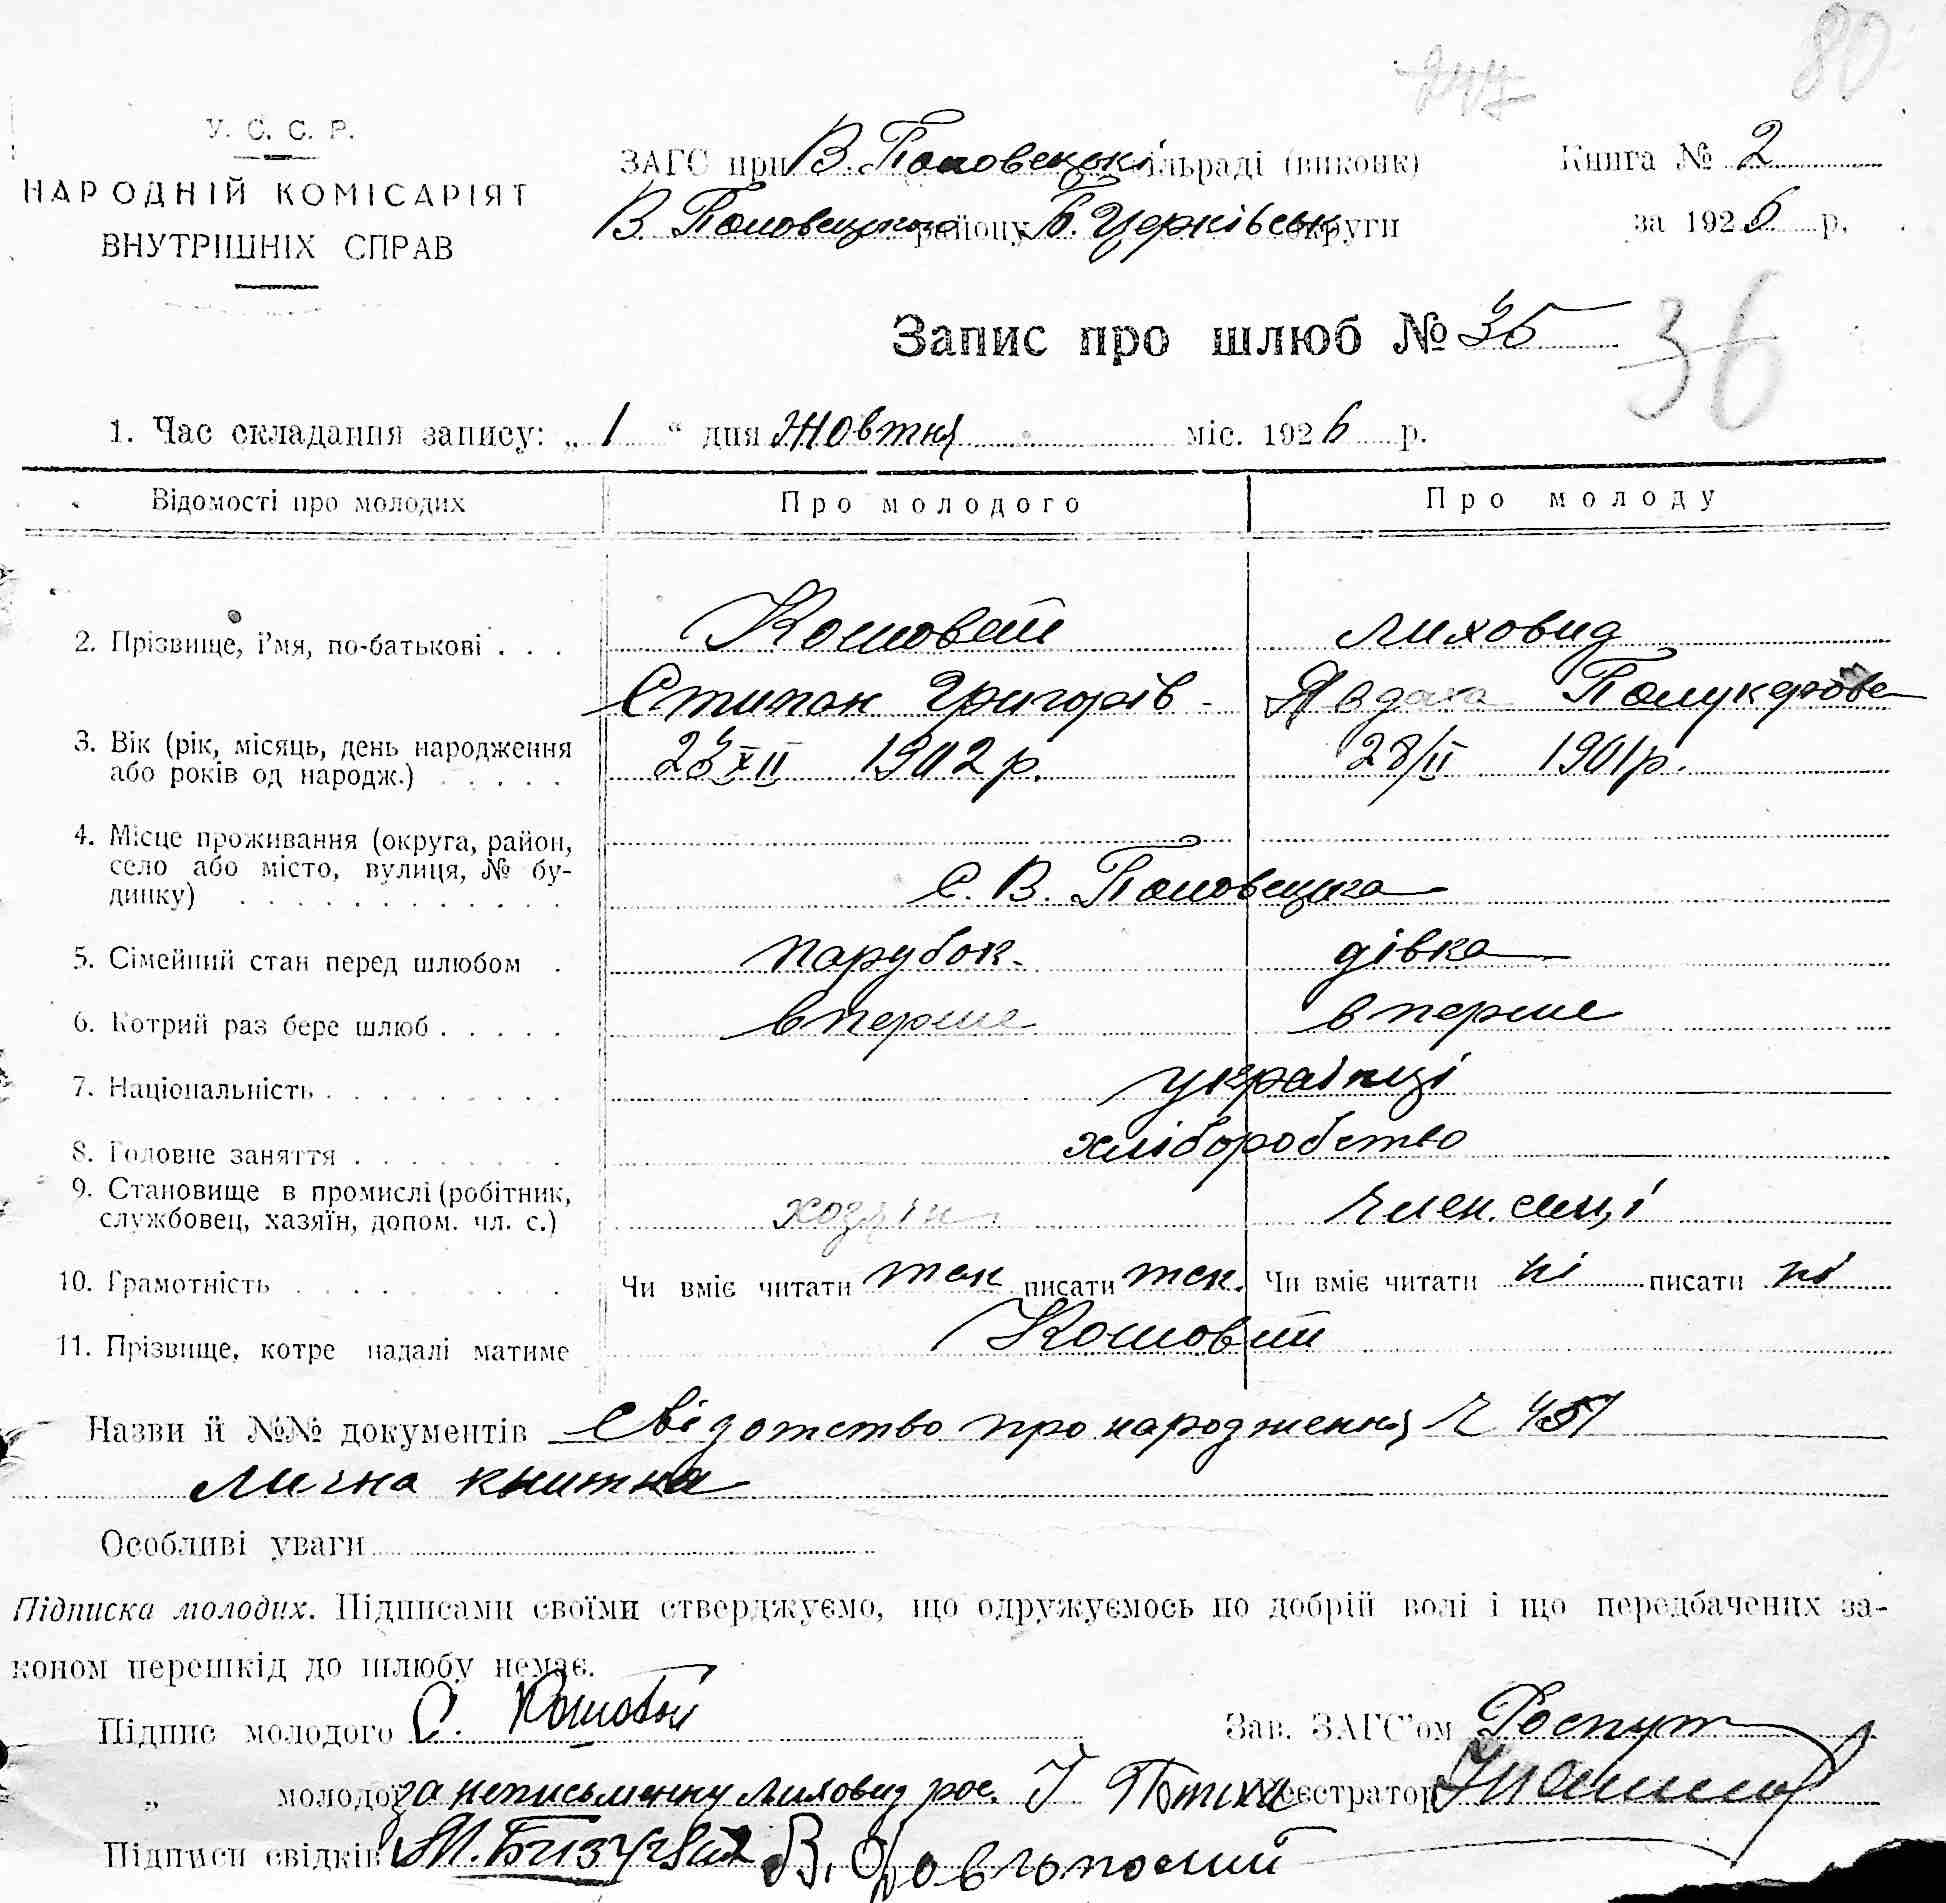 80
У. С. С. Р.
НАРОДНІЙ КОМІСАРІЯТ
ВНУТРІШНІХ СПРАВ
ЗАГС при В. Половецькі сільраді (виконк) Книга № 2
В. Половецького району Б. Церківськ округи за 1926 р.
Запис про шлюб № 35
36
1. Час складання запису: „ 1 “ дня жовтня міс. 1926 р.
Відомості про молодих Про молодого Про молоду
2. Прізвище, і'мя, по-батькові . . . Кошовий Лиховид
Степан Григорів - Явдоха
3. Вік (рік, місяць, день народження або років од народж.) . . . . . 23 XII 1902 р. 28/II 1901 р.
4. Місце проживання (округа, район,
село або місто, вулиця, № бу-
динку) . . . . . . . . . . . . С. В. Половецка
5. Сімейний стан перед шлюбом . парубок. дівка
6. Котрий раз бере шлюб . . . . . вперше вперше
7. Національність . . . . . . . . . українці
8. Головне заняття . . . . . . . . хліборобство
9. Становище в промислі (робітник,
службовец, хазяїн, допом. чл. с.) хозяїн член. семʼї
10. Грамотність . . . . . . . . . . Чи вміє читати так писати так. Чи вміє читати ні писати ні
11. Прізвище, котре надалі матиме Кошовий
Назви й №№ документів Свідотство про народження Ч 457
Лична книжка
Особливі уваги
Підписка молодих. Підписами своїми стверджуємо, що одружуємось по добрій волі і що передбачених за-
коном перешкід до шлюбу немає.
Підпис молодого С. Кошовий Зав. ЗАГС'ом
„ молодої за неписьменну Лиховид рос. І Реєстратор
Підписи свідків М. В.